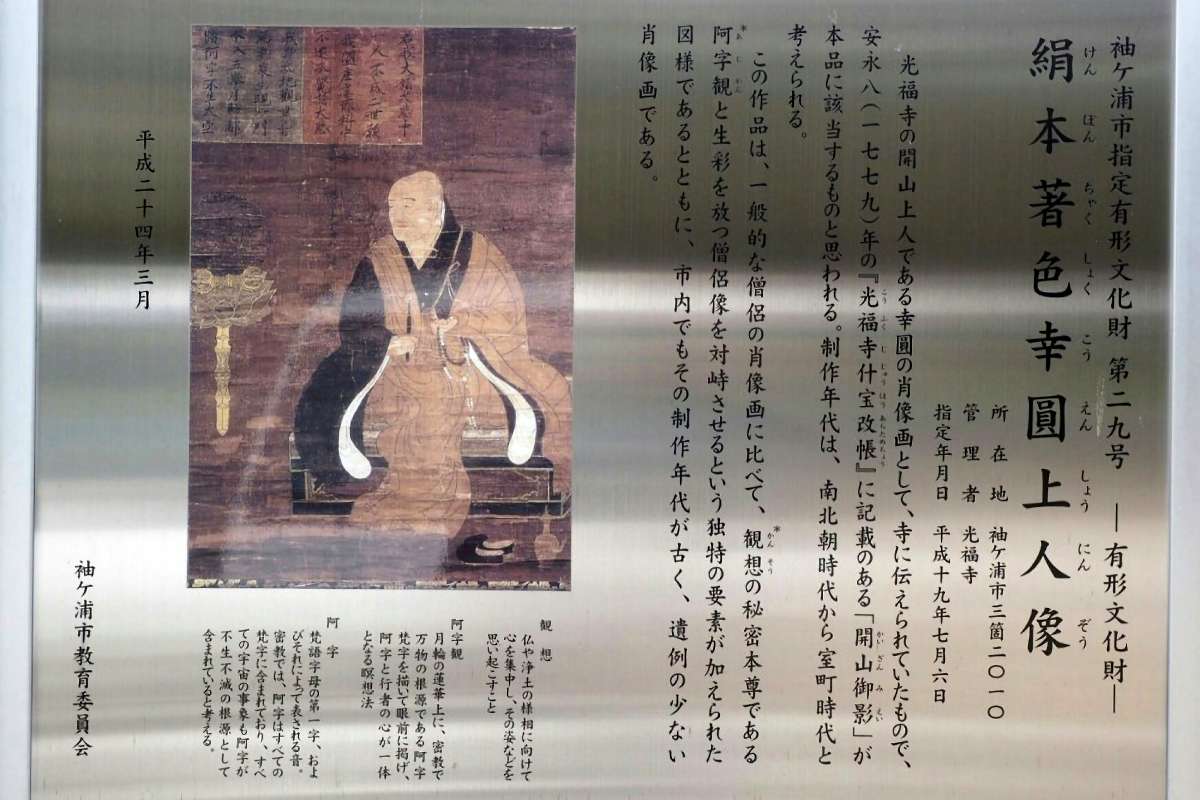 袖ケ浦市指定有形文化財 第二九号 ―有形文化財―
絹本著色幸圓上人像
けんぽんちゃくしょくこうえんしょうにんぞう
所在地 袖ケ浦市三箇二〇一〇
管理者 光福寺
指定年月日 平成十九年七月六日
光福寺の開山上人である幸圓の肖像画として、寺に伝えられていたもので、
安永八(一七七九)年の『光福寺什宝改帳』に記載のある「開山御影」が
こうふくじじゅうほうあらためちょう
かいざんみえい
本品に該当するものと思われる。制作年代は、南北朝時代から室町時代と
考えられる。
この作品は、一般的な僧侶の肖像画に比べて、*観想の秘密本尊である
かんそう
*阿字観と生彩を放つ僧侶像を対峙させるという独特の要素が加えられた
あじかん
図様であるとともに、市内でもその制作年代が古く、遺例の少ない
肖像画である。
観想
仏や浄土の様相に向けて
心を集中し、その姿などを
思い起こすこと
阿字観
月輪の蓮華上に、密教で
万物の根源である阿字
梵字を描いて眼前に掲げ、
阿字と行者の心が一体
となる瞑想法
阿字
梵語字母の第一字、およ
びそれによって表される音。
密教では、阿字はすべての
梵字に含まれており、すべ
ての宇宙の事象も阿字が
不生不滅の根源として
含まれていると考える。
平成二十四年三月
袖ケ浦市教育委員会